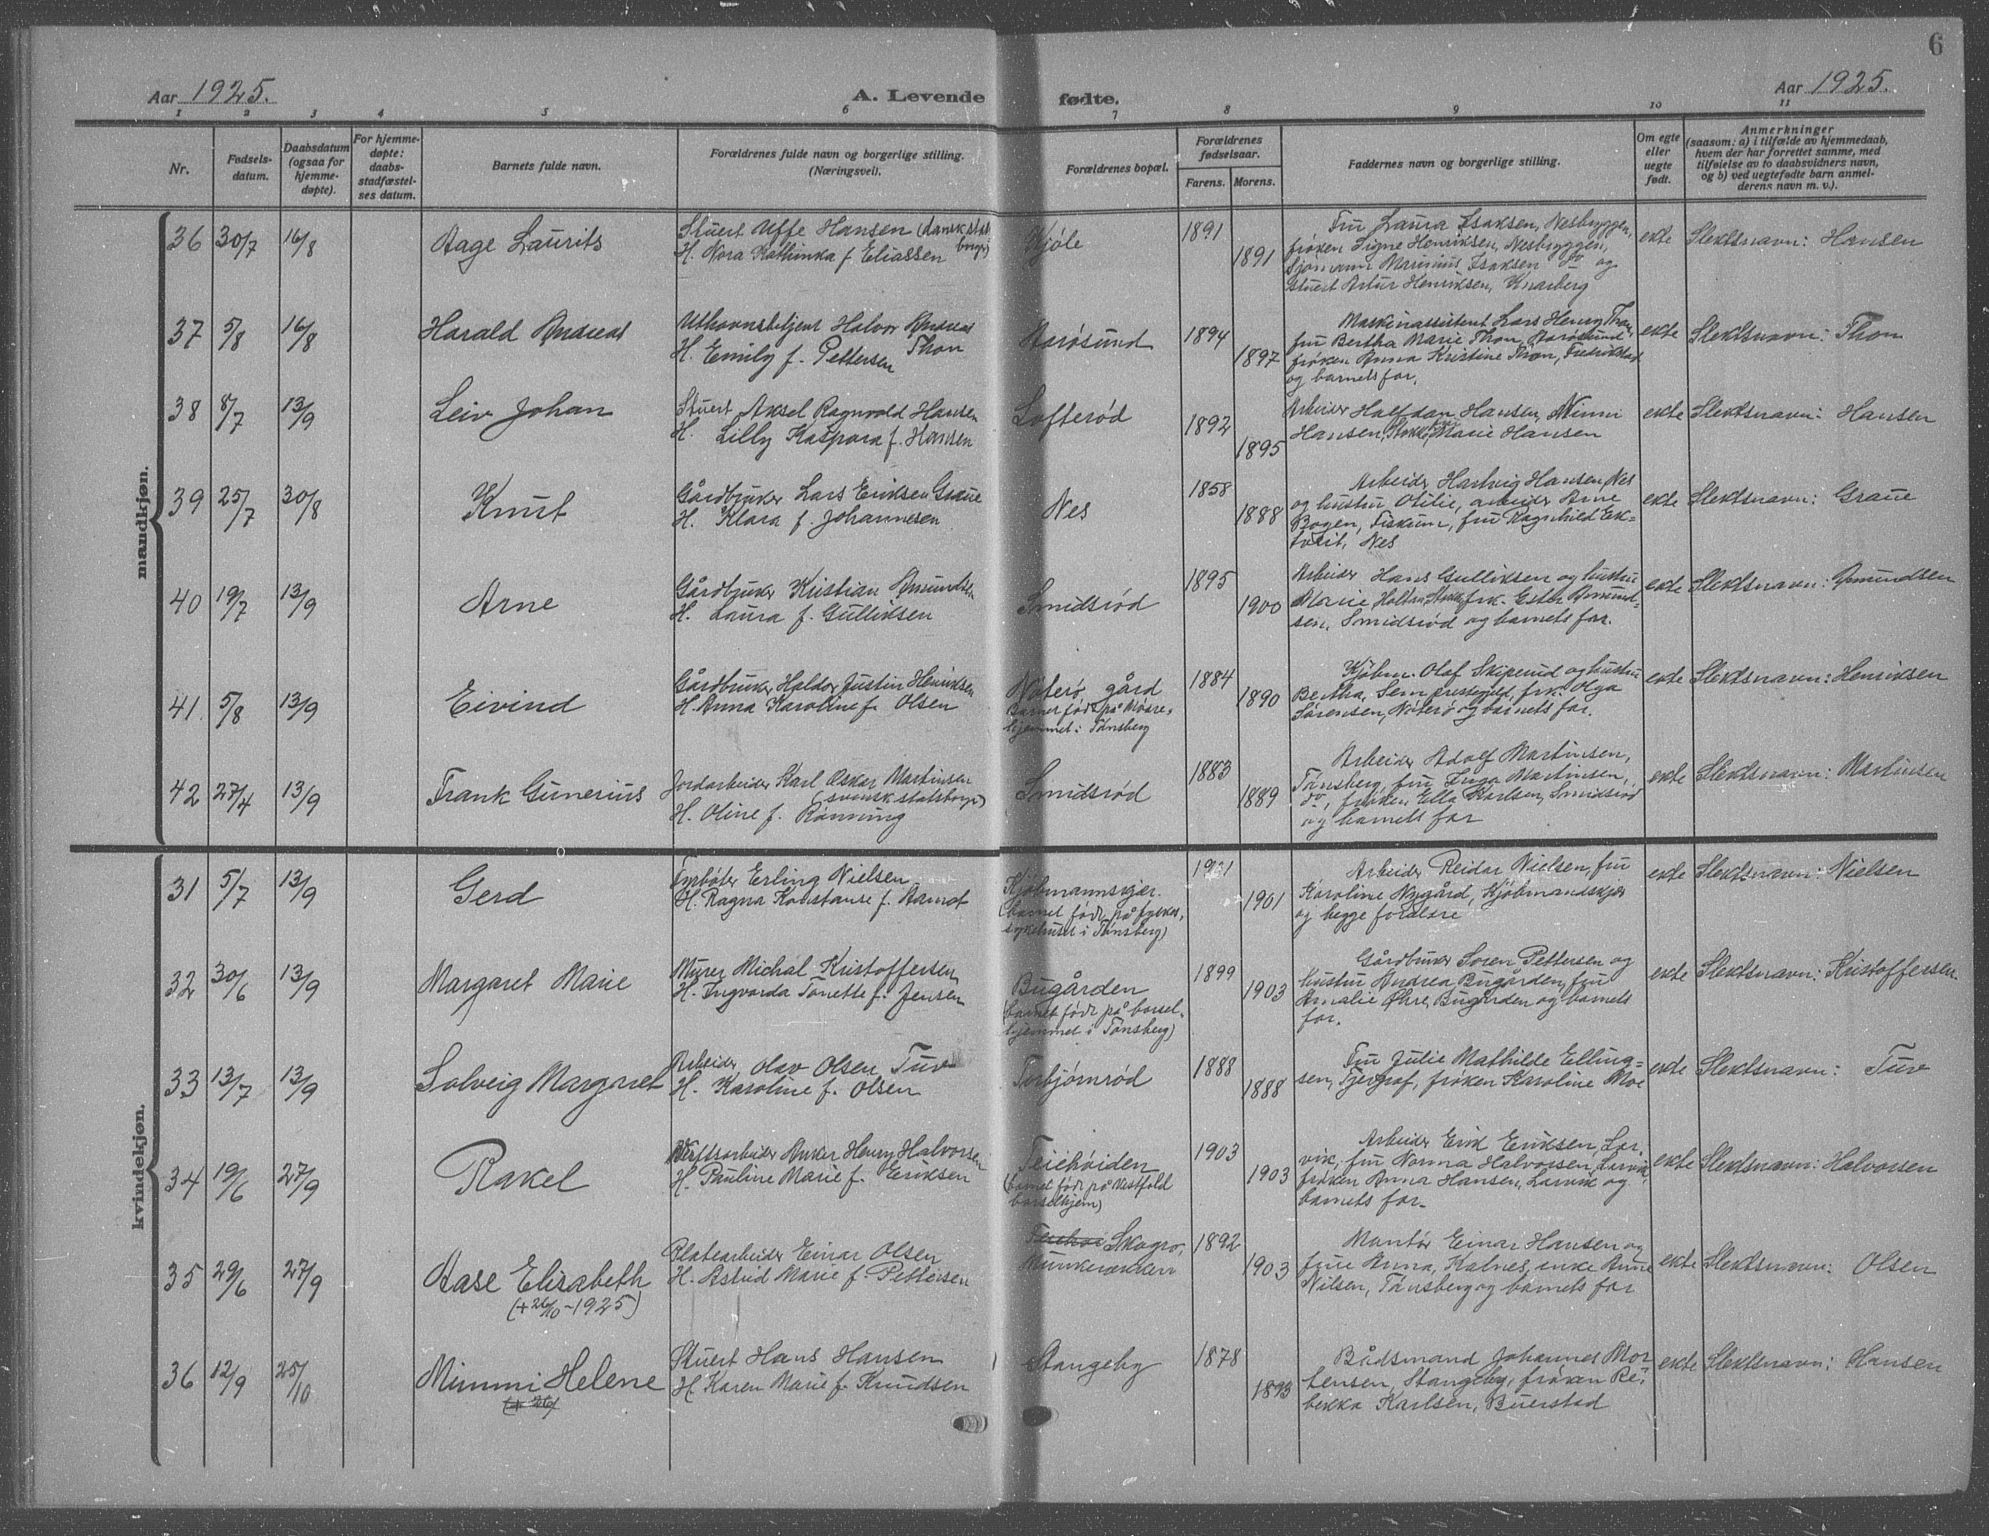 6
Aar 1925.
A. Levende fødte.
Aar 1925.
1 2 3 4 5 6 7 8 9 10 11
Nr.
Fødsels-
datum.
Daabsdatum
(ogsaa for
hjemme-
døpte).
For hjemme-
døpte:
daabs-
stadfæstel-
ses datum.
Barnets fulde navn.
Forældrenes fulde navn og borgerlige stilling.
(Næringsvei).
Forældrenes bopæl.
Forældrenes
fødselsaar.
Farens. Morens.
Faddernes navn og borgerlige stilling.
Om egte
eller
uegte
født.
Anmerkninger
(saasom: a) i tilfælde av hjemmedaab,
hvem der har forrettet samme, med
tilføielse av to daabsvidners navn,
og b) ved uegtefødte barn anmel-
derens navn m. v.).
mandkjøn.
36 30/7 16/8 Aage Laurits
Stuert Uffe Hansen (dansk stats
borger)
H. Nora Kathinka f. Eliassen
Kjøle
1891
1891
Fru Laura Isaksen, Nesbryggen,
frøken Signe Henriksen, Nesbryggen,
Sjømann Marinius Isaksen do og
Stuert Artur Henriksen, Knarberg
ekte
Slektsnavn: Hansen
37 5/8 16/8 Harald Andreas
Halvor Andreas
Thon
H. Emily f. Pettersen
Aarøsund
1894
1897
Maskinassistent Lars Henry Thon,
fru Bertha Marie Thon, Aarøsund
frøken Anna Kristine Thon, Fredrikstad
og barnets far.
ekte
Slektsnavn: Thon
38 8/7 13/9 Leiv Johan
Stuert Aksel Ragnvald Hansen
H. Lilly Kaspara f. Hansen
Lofterød
1892
1895
Arbeider Halfdan Hansen, Minni
Hansen, Stokke, Marie Hansen
ekte
Slektsnavn: Hansen
39 25/7 30/8 Knut
Gårdbruker Lars Eriksen Graue
H. Klara f. Johannesen
Nes
1858
1888
Arbeider Hartvig Hansen, Nes
og hustru Otilie, arbeider Arne
Bogen, Fiskum, fru Ragnhild Ek-
tveit, Nes
ekte
Slektsnavn: Graue
40 19/7 13/9 Arne
Gårdbruker Kristian Amundsen
H. Laura f. Gulliksen
Smidsrød
1895
1900
Arbeider Hans Gulliksen og hustru
Marie, Holten, Stokke, frk. Ester Amund-
sen, Smidsrød og barnets far.
ekte
Slektsnavn: Amundsen
41. 5/8 13/9 Eivind
Gårdbruker Haldor Justin Henriksen
H. Anna Karoline f. Olsen
Nøterø gård
Barnet født på Mødre-
hjemmet i Tønsberg
1884
1890
Kjøbm. Olaf Skiperud og hustru
Bertha, Sem prestegjeld, frk. Olga
Sørensen, Nøterø og barnets far.
ekte
Slektsnavn: Henriksen
42 27/4 13/9 Frank Gunerius
Jordarbeider Karl Oskar Martinsen
(svensk statsborger)
H. Oline f. Rønning
Smidsrød
1883
1889
Arbeider Adolf Martinsen,
Tønsberg, fru Inga Martinsen,
do, frøken Ella Karlsen, Smidsrød
og barnets far
ekte
Slektsnavn: Martinsen
kvindekjøn.
31 5/7 13/9 Gerd
Fyrbøter Erling Nielsen
H. Ragna Konstanse f. Aamot
Kjøbmannsskjær.
(barnet født på fylkes-
sykehuset i Tønsberg)
1901
1901
Arbeider Reidar Nielsen, fru
Karoline Nygård, Kjøbmandsskjær
og begge foreldre
ekte
Slektsnavn: Nielsen
32 30/6 13/9 Margaret Marie
Murer Michal Kristoffersen
H. Ingvarda Tonette f. Jensen
Bugården
(barnet født på barsel-
hjemmet i Tønsberg)
1899
1903
Gårdbruker Søren Pettersen og
hustru Andrea, Bugården, fru
Amalie Øhre, Bugården og barnets
far.
ekte
Slektsnavn: Kristoffersen
33 13/7 13/9 Solveig Margaret
Arbeider Olav Olsen Tuv
H. Karoline f. Olsen
Torbjørnrød
1888
1888
Fru Julie Mathilde Elling-
sen, frøken Karoline Moe
ekte
Slektsnavn: Tuv
34 19/6 27/9 Rakel
Verftsarbeider Anker Henry Halvorsen
H. Pauline Marie f. Eriksen
Teiehøiden
(barnet født på Vestfold
barselhjem)
1903
1903
Arbeider Erik Eriksen, Lar-
vik, fru Norma Halvorsen, Larvik,
frøken Anna Hansen, Larvik og
barnets far.
ekte
Slektsnavn: Halvorsen
35 29/6 27/9 Aase Elisabeth
(+ 26/10-1925)
Platearbeider Einar Olsen
H. Astrid Marie f. Pettersen
Teiehøi Skogro,
Munkerækken
1892
1903
Montør Einar Hansen og
frue Anna, Kalnes, enke Anne
Nilsen, Tønsberg og barnets far
ekte
Slektsnavn: Olsen
36 12/9 25/10 Mimmi Helene
(+ 26/
Stuert Hans Hansen
H. Karen Marie f. Knudsen
Stangeby
1878
1893
Bådsmand Johannes Mor
tensen, Stangeby, frøken Re-
bekka Karlsen, Buerstad
ekte
Slektsnavn: Hansen